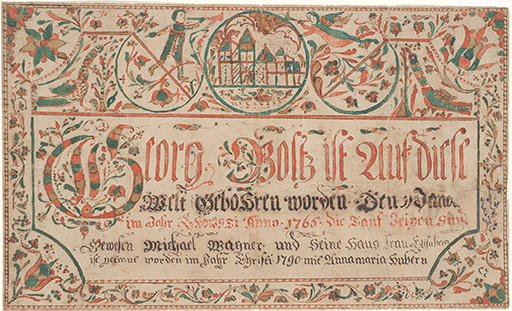 Georg Boltz ist Auf diese
Welt Gebohren worden Den
im Jahr Anno 1765 die Tauf Zeigen Sind
Gewesen Michael Wagner und Seine Haus frau
ist getraut worden im Jahr Christi 1790 mit Annamaria Hubern